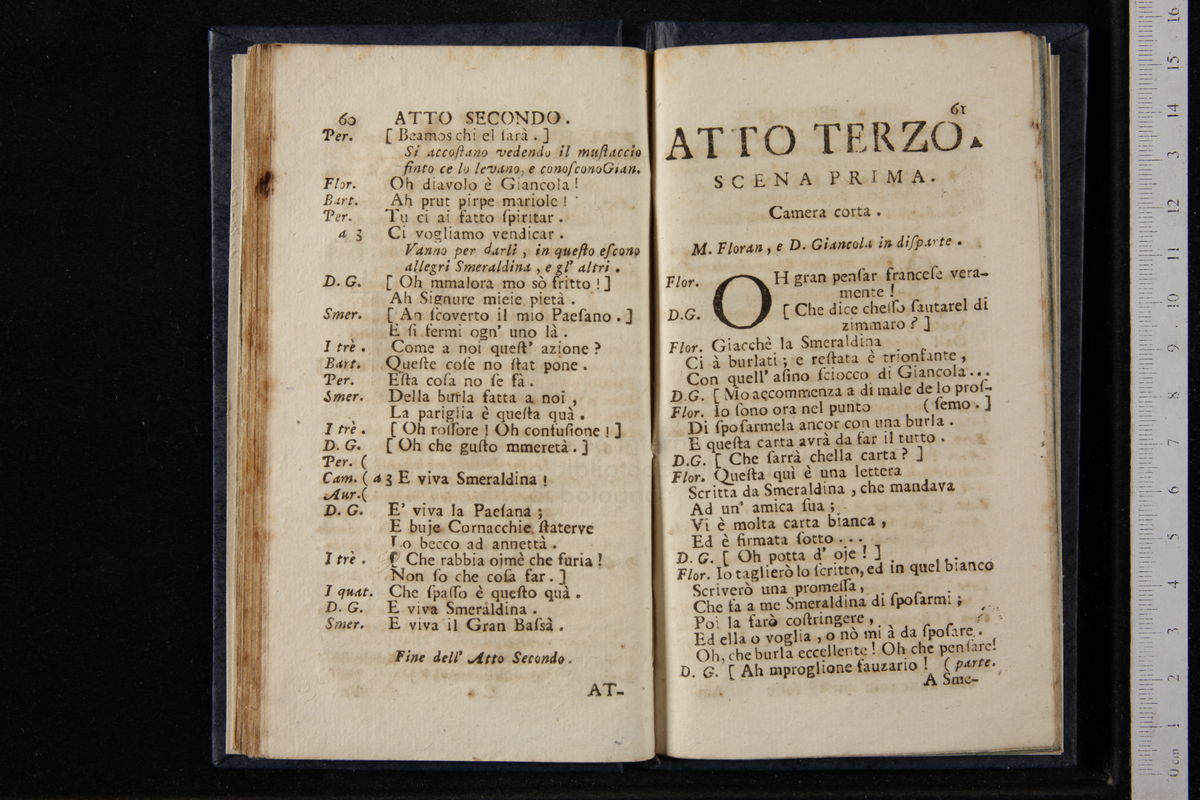 60 ATTO SECONDO.
Per. [ Beamos chi el ſarà . ]
Si accoſtano vedendo il muſtaccio
finto ce lo levano, e conoſconoGian.
Flor. Oh diavolo è Giancola !
Bart. Ah prut pirpe mariole !
Per. Tu ci ai fatto ſpiritar .
a 3 Ci vogliamo vendicar .
Vanno per darli , in queſto eſcono
allegri Smeraldina , e gl' altri .
D. G. [ Oh mmalora mo sò fritto ! ]
Ah Signure mieie pietà .
Smer. [ An ſcoverto il mio Paeſano . ]
E ſi fermi ogn' uno là .
I trè . Come a noi queſt' azione ?
Bart. Queſte coſe no ſtat pone .
Per. Eſta coſa no ſe fà .
Smer. Della burla fatta a noi ,
La pariglia è queſta quà .
I trè . [ Oh roſſore ! Oh confuſione ! ]
D. G. [ Oh che guſto mmeretà . ]
Per. (
Cam. ( a 3 E viva Smeraldina !
Aur. (
D. G. E' viva la Paeſana ;
E buje Cornacchie ſtaterve
Lo becco ad annettà .
I trè . [ Che rabbia oimè che furia !
Non ſo che coſa far . ]
I quat. Che ſpaſſo è queſto quà .
D. G. E viva Smeraldina .
Smer. E viva il Gran Baſsà .
Fine dell' Atto Secondo .
AT-
61
ATTO TERZO.
SCENA PRIMA.
Camera corta .
M. Floran , e D. Giancola in diſparte .
Flor. OH gran penſar franceſe vera-
mente !
D.G. [ Che dice cheſſo ſautarel di
zimmaro ? ]
Flor. Giacchè la Smeraldina
Ci à burlati ; e reſtata è trionfante ,
Con quell' aſino ſciocco di Giancola ...
D. G. [ Mo accommenza a di male de lo proſ-
Flor. Io ſono ora nel punto ( ſemo . ]
Di ſpoſarmela ancor con una burla .
E queſta carta avrà da far il tutto .
D.G. [ Che ſarrà chella carta ? ]
Flor. Queſta quì è una lettera
Scritta da Smeraldina , che mandava
Ad un' amica ſua ;
Vi è molta carta bianca ,
Ed è firmata ſotto ...
D. G. [ Oh potta d' oje ! ]
Flor. Io taglierò lo ſcritto, ed in quel bianco
Scriverò una promeſſa ,
Che fa a me Smeraldina di ſpoſarmi ;
Poi la farò coſtringere ,
Ed ella o voglia , o nò mi à da ſpoſare .
Oh, che burla eccellente ! Oh che penſare!
D. G. [ Ah mproglione fauzario ! ( parte.
A Sme-